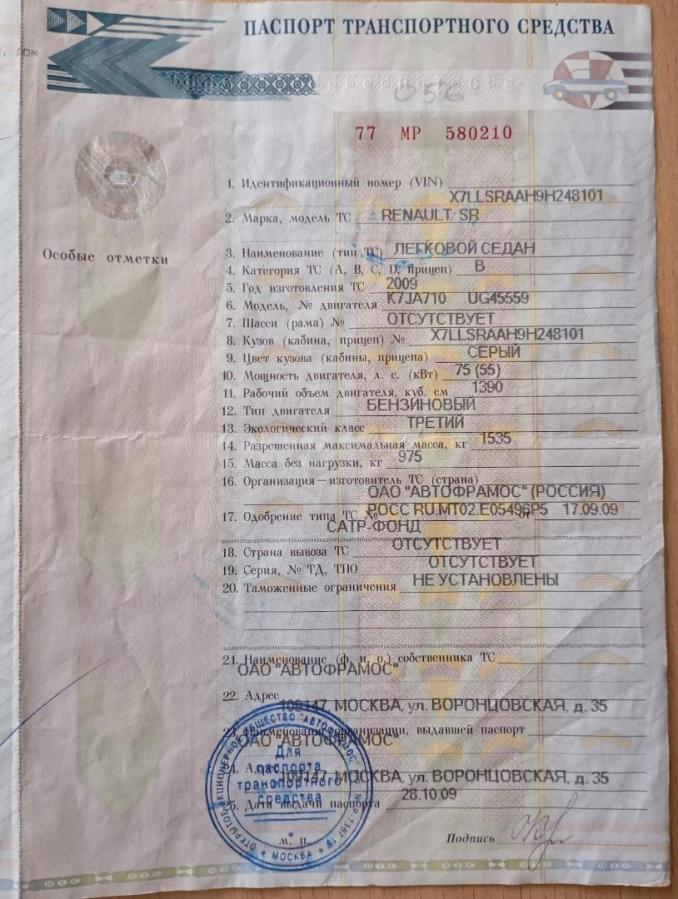 ПАСПОРТ ТРАНСПОРТНОГО СРЕДСТВА
056
77 МР 580210
Особые отметки
1. Идентификационный номер (VIN) X7LLSRAAH9H248101
2. Марка, модель ТС RENAULT SR
3. Наименование (тип ТС) ЛЕГКОВОЙ СЕДАН
4. Категория ТС (А, В, С, D, прицеп) В
5. Год изготовления ТС 2009
6. Модель, № двигателя K7JA710 UG45559
7. Шасси (рама) № ОТСУТСТВУЕТ
8. Кузов (кабина, прицеп) № X7LLSRAAH9H248101
9. Цвет кузова (кабины, прицепа) СЕРЫЙ
10. Мощность двигателя, л. с. (кВт) 75 (55)
11. Рабочий объем двигателя, куб. см 1390
12. Тип двигателя БЕНЗИНОВЫЙ
13. Экологический класс ТРЕТИЙ
14. Разрешенная максимальная масса, кг 1535
15. Масса без нагрузки, кг 975
16. Организация—изготовитель ТС (страна)
ОАО "АВТОФРАМОС" (РОССИЯ)
17. Одобрение типа ТС № РОСС RU.MT02.E05496P5 от 17.09.09
САТР-ФОНД
18. Страна вывоза ТС ОТСУТСТВУЕТ
19. Серия, № ТД, ТПО ОТСУТСТВУЕТ
20. Таможенные ограничения НЕ УСТАНОВЛЕНЫ
21. Наименование (ф. и. о.) собственника ТС
ОАО "АВТОФРАМОС"
22. Адрес
109147, МОСКВА, ул. ВОРОНЦОВСКАЯ, д. 35
23. Наименование организации, выдавшей паспорт
ОАО "АВТОФРАМОС"
24. Адрес
109147, МОСКВА, ул. ВОРОНЦОВСКАЯ, д. 35
25. Дата выдачи паспорта 28.10.09
Для
паспорта
транспортного
средства
ОТКРЫТОЕ АКЦИОНЕРНОЕ ОБЩЕСТВО "АВТОФРАМОС"
МОСКВА
М. П.
Подпись